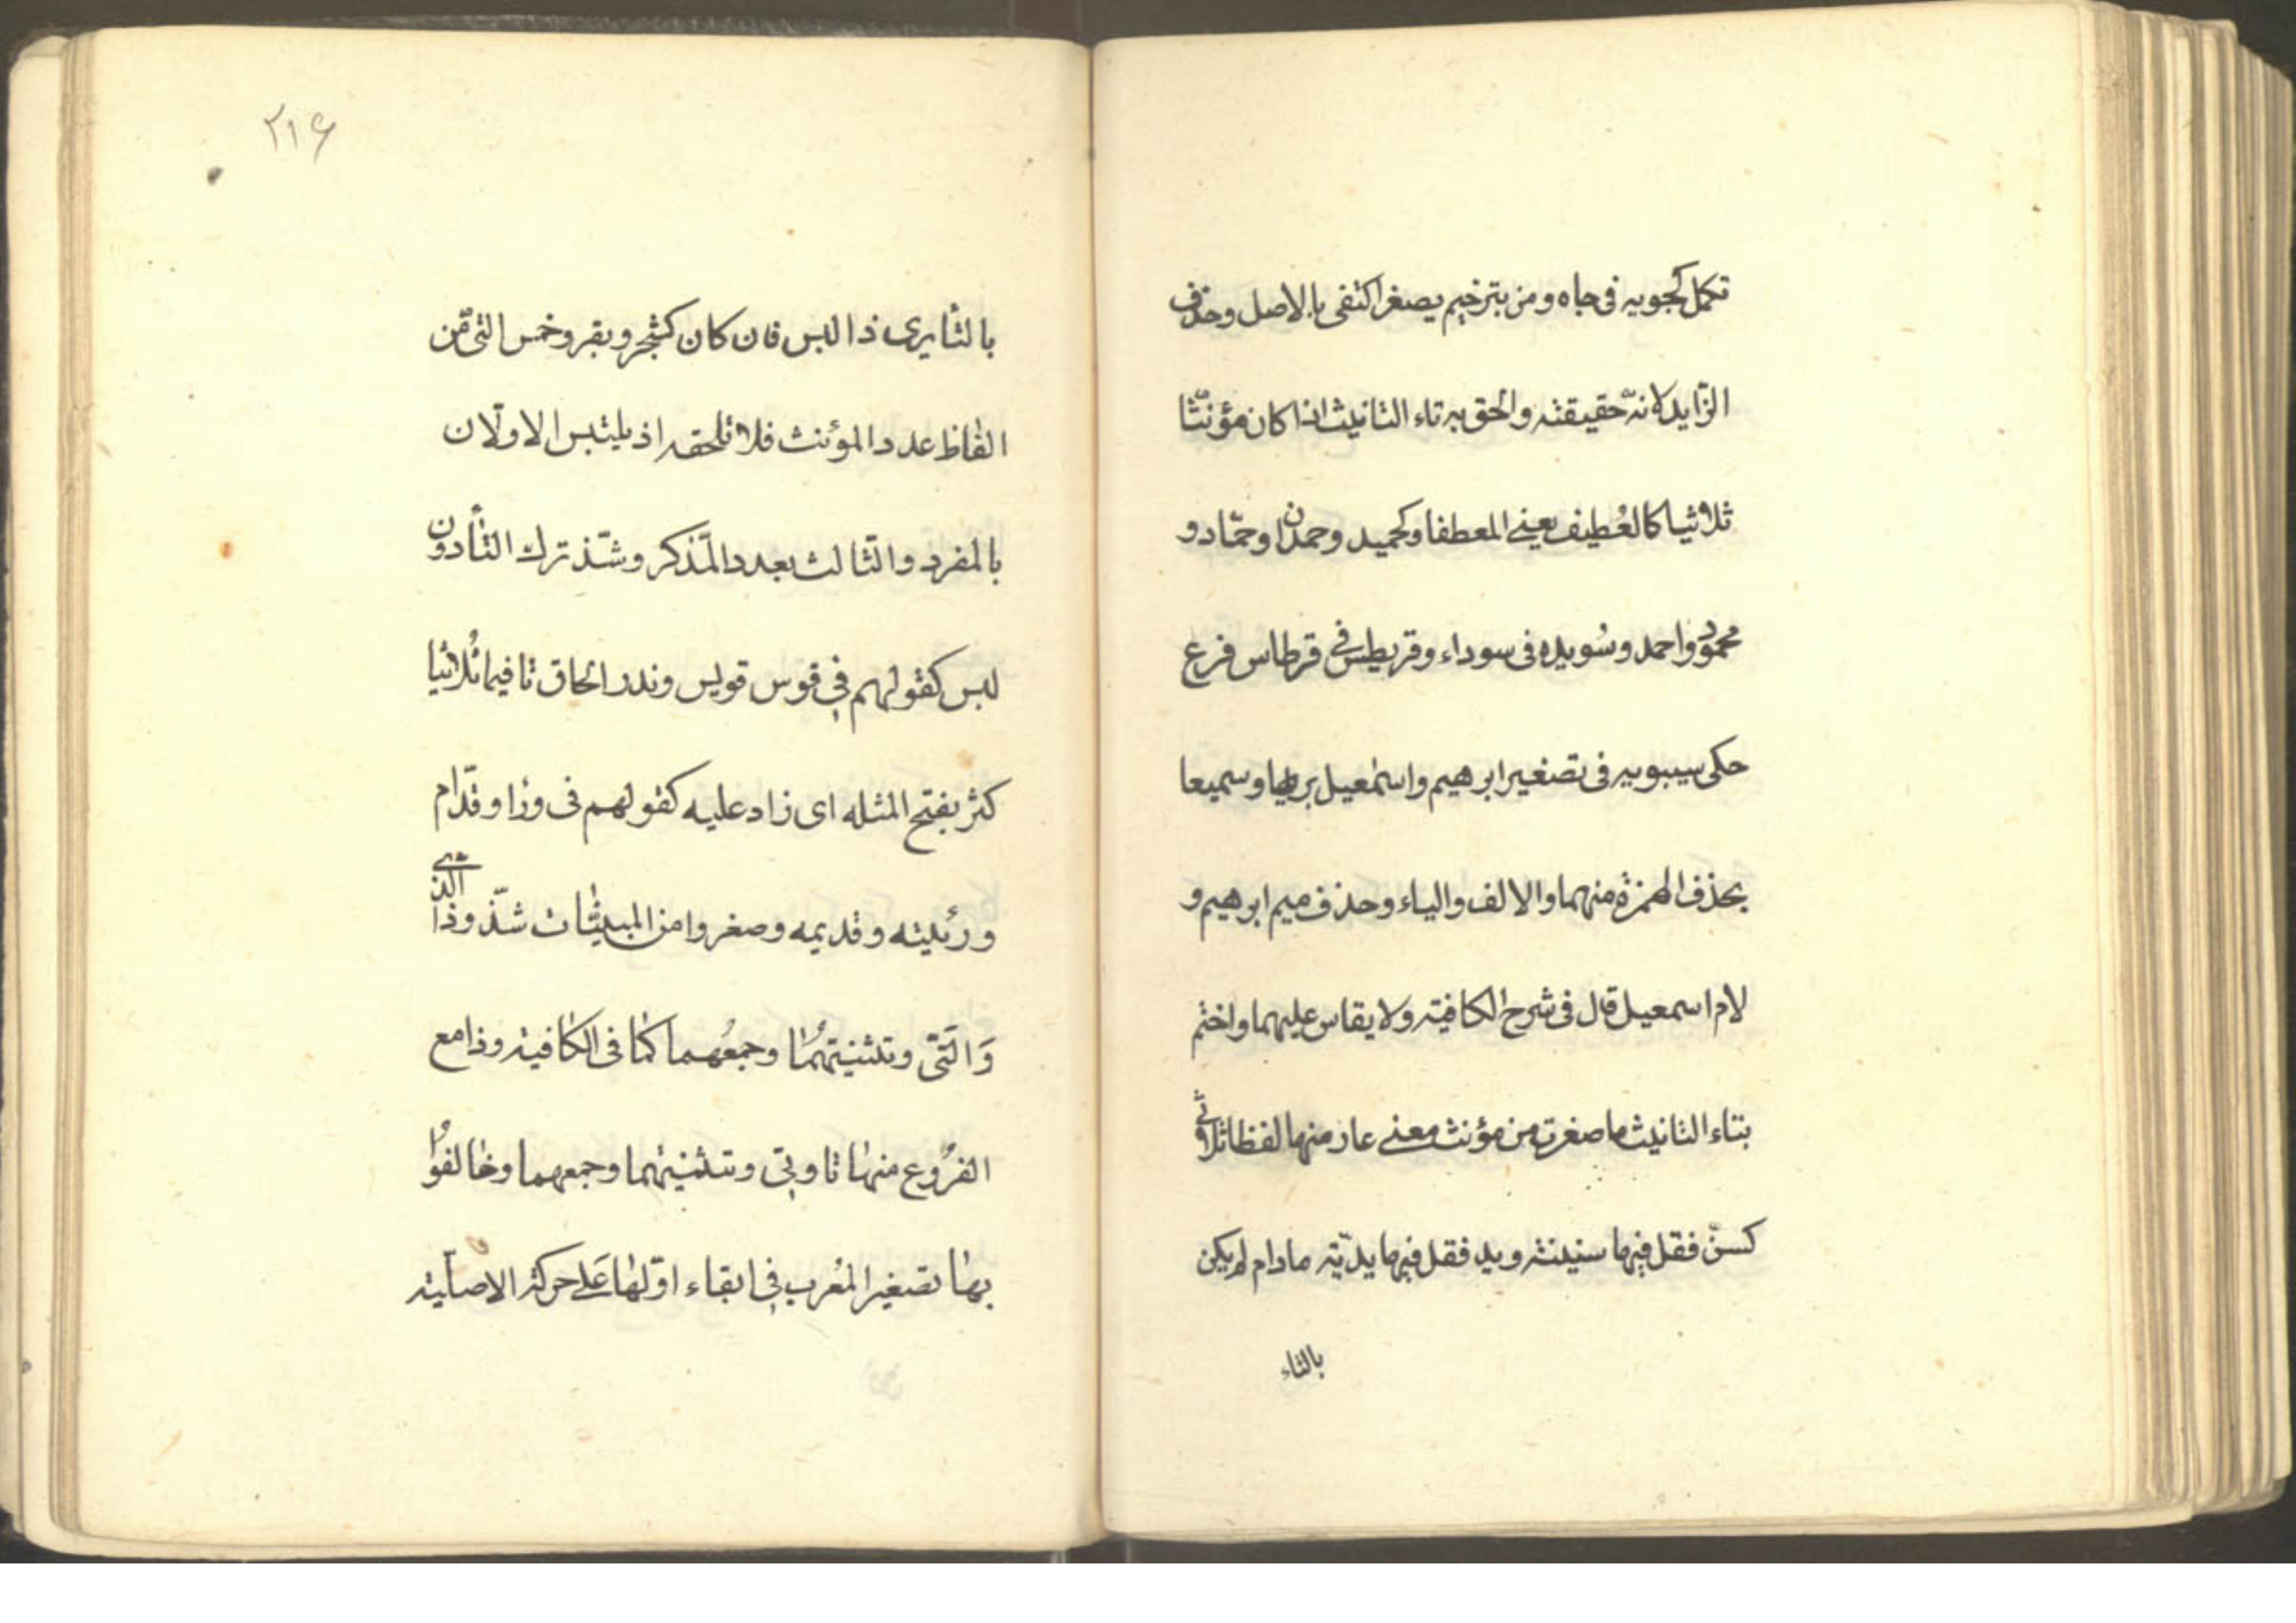 تكمل كجويه فى جاه ومن بترخيم يصغر اكتفى بالاصل وحذف
الزّايد لانّه حقيقته والحق به تاء التانيث اذا كان مؤنّثا
ثلاثيا كالعُطيف يعنے المعطفا وكحميد وحمدان وحمّاد و
محمود واحمد وسُويده فى سوداء وقريطس فے قرطاس فرع
حكى سيبويه فى تصغير ابرهيم واسمٰعيل بريها وسميعا
بحذف الهمزة منهما والالف والياء وحذف ميم ابرهيم و
لام اسمعيل قال فى شرح الكافيته ولا يقاس عليهما واختم
بتاء التانيث ما صغرت من مؤنث معنے عار منها لفظا ثلاثے
كسنّ فقل فيها سنينته ويد فقل فيها يديّته مادام لم يكن
بالتاء
٢١٦
بالتأ يرى ذا لبس فان كان كشجر وبقر وخمس التى من
الفاظ عدد المؤنث فلا تلحقه اذ يلتبس الاولان
بالمفرد والثالث بعدد المذكر وشذ ترك التأ دون
لبس كقولهم فى قوس قويس وندر الحاق تا فيما ثلاثيا
كثر بفتح المثله اى زاد عليه كقولهم فى ورٰا وقدّام
ورئيته وقديمه وصغروا من المبنيات شذّوذا الذے
وَالّتى وتثنيتهُما وجمعُهما كما فى الكافيته وذا مع
الفروُع منها تا وتى وتثنيتهما وجمعهما وخالفوُا
بها تصغير المعُرب فى ابقاء اوّلها عَلے حركته الاصليته